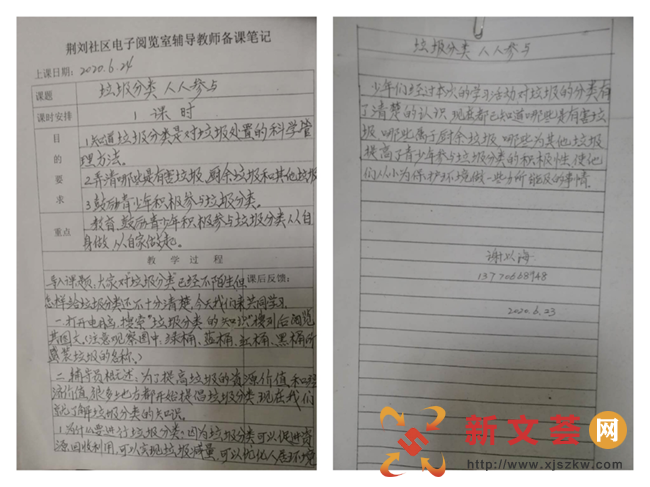 荆刘社区电子阅览室辅导教师备课笔记
上课日期：2020.6.24
课题 垃圾分类 人人参与
课时安排 1 课 时
目的要求
1.知道垃圾分类是对垃圾处置的科学管
理方法。
2.弄清哪些是有害垃圾、厨余垃圾和其他垃圾
3.鼓励青少年积极参与垃圾分类。
重点
教育、鼓励青少年积极参与垃圾分类从自
身做 从自家做起。
教 学 过 程
导入课题：大家对垃圾分类已经不陌生但 课后反馈：
怎样给垃圾分类还不十分清楚，今天我们来共同学习
一.打开电脑，搜索"垃圾分类的知识"搜到后浏览
其图文，注意观察图中，绿桶、蓝桶、红桶、黑桶所
装垃圾的名称。
二.辅导员概述：为了提高垃圾的资源价值和经
济价值，很多地方都开始提倡垃圾分类，现在我们
就了解垃圾分类的知识。
1.为什么要进行垃圾分类：因为垃圾分类可以促进资
源回收利用，可以实现垃圾减量，可以优化人居环境
垃圾分类 人人参与
少年们经过本次的学习活动对垃圾的分类有
了清楚的认识 现在都已知道哪些是有害垃
圾 哪些属于厨余垃圾 哪些为其他垃圾
提高了青少年参与垃圾分类的积极性，使他
们从小为保护环境做一些力所能及的事情。
谢以海
13770668948
2020.6.23
新文荟网
http://www.xjszkw.com